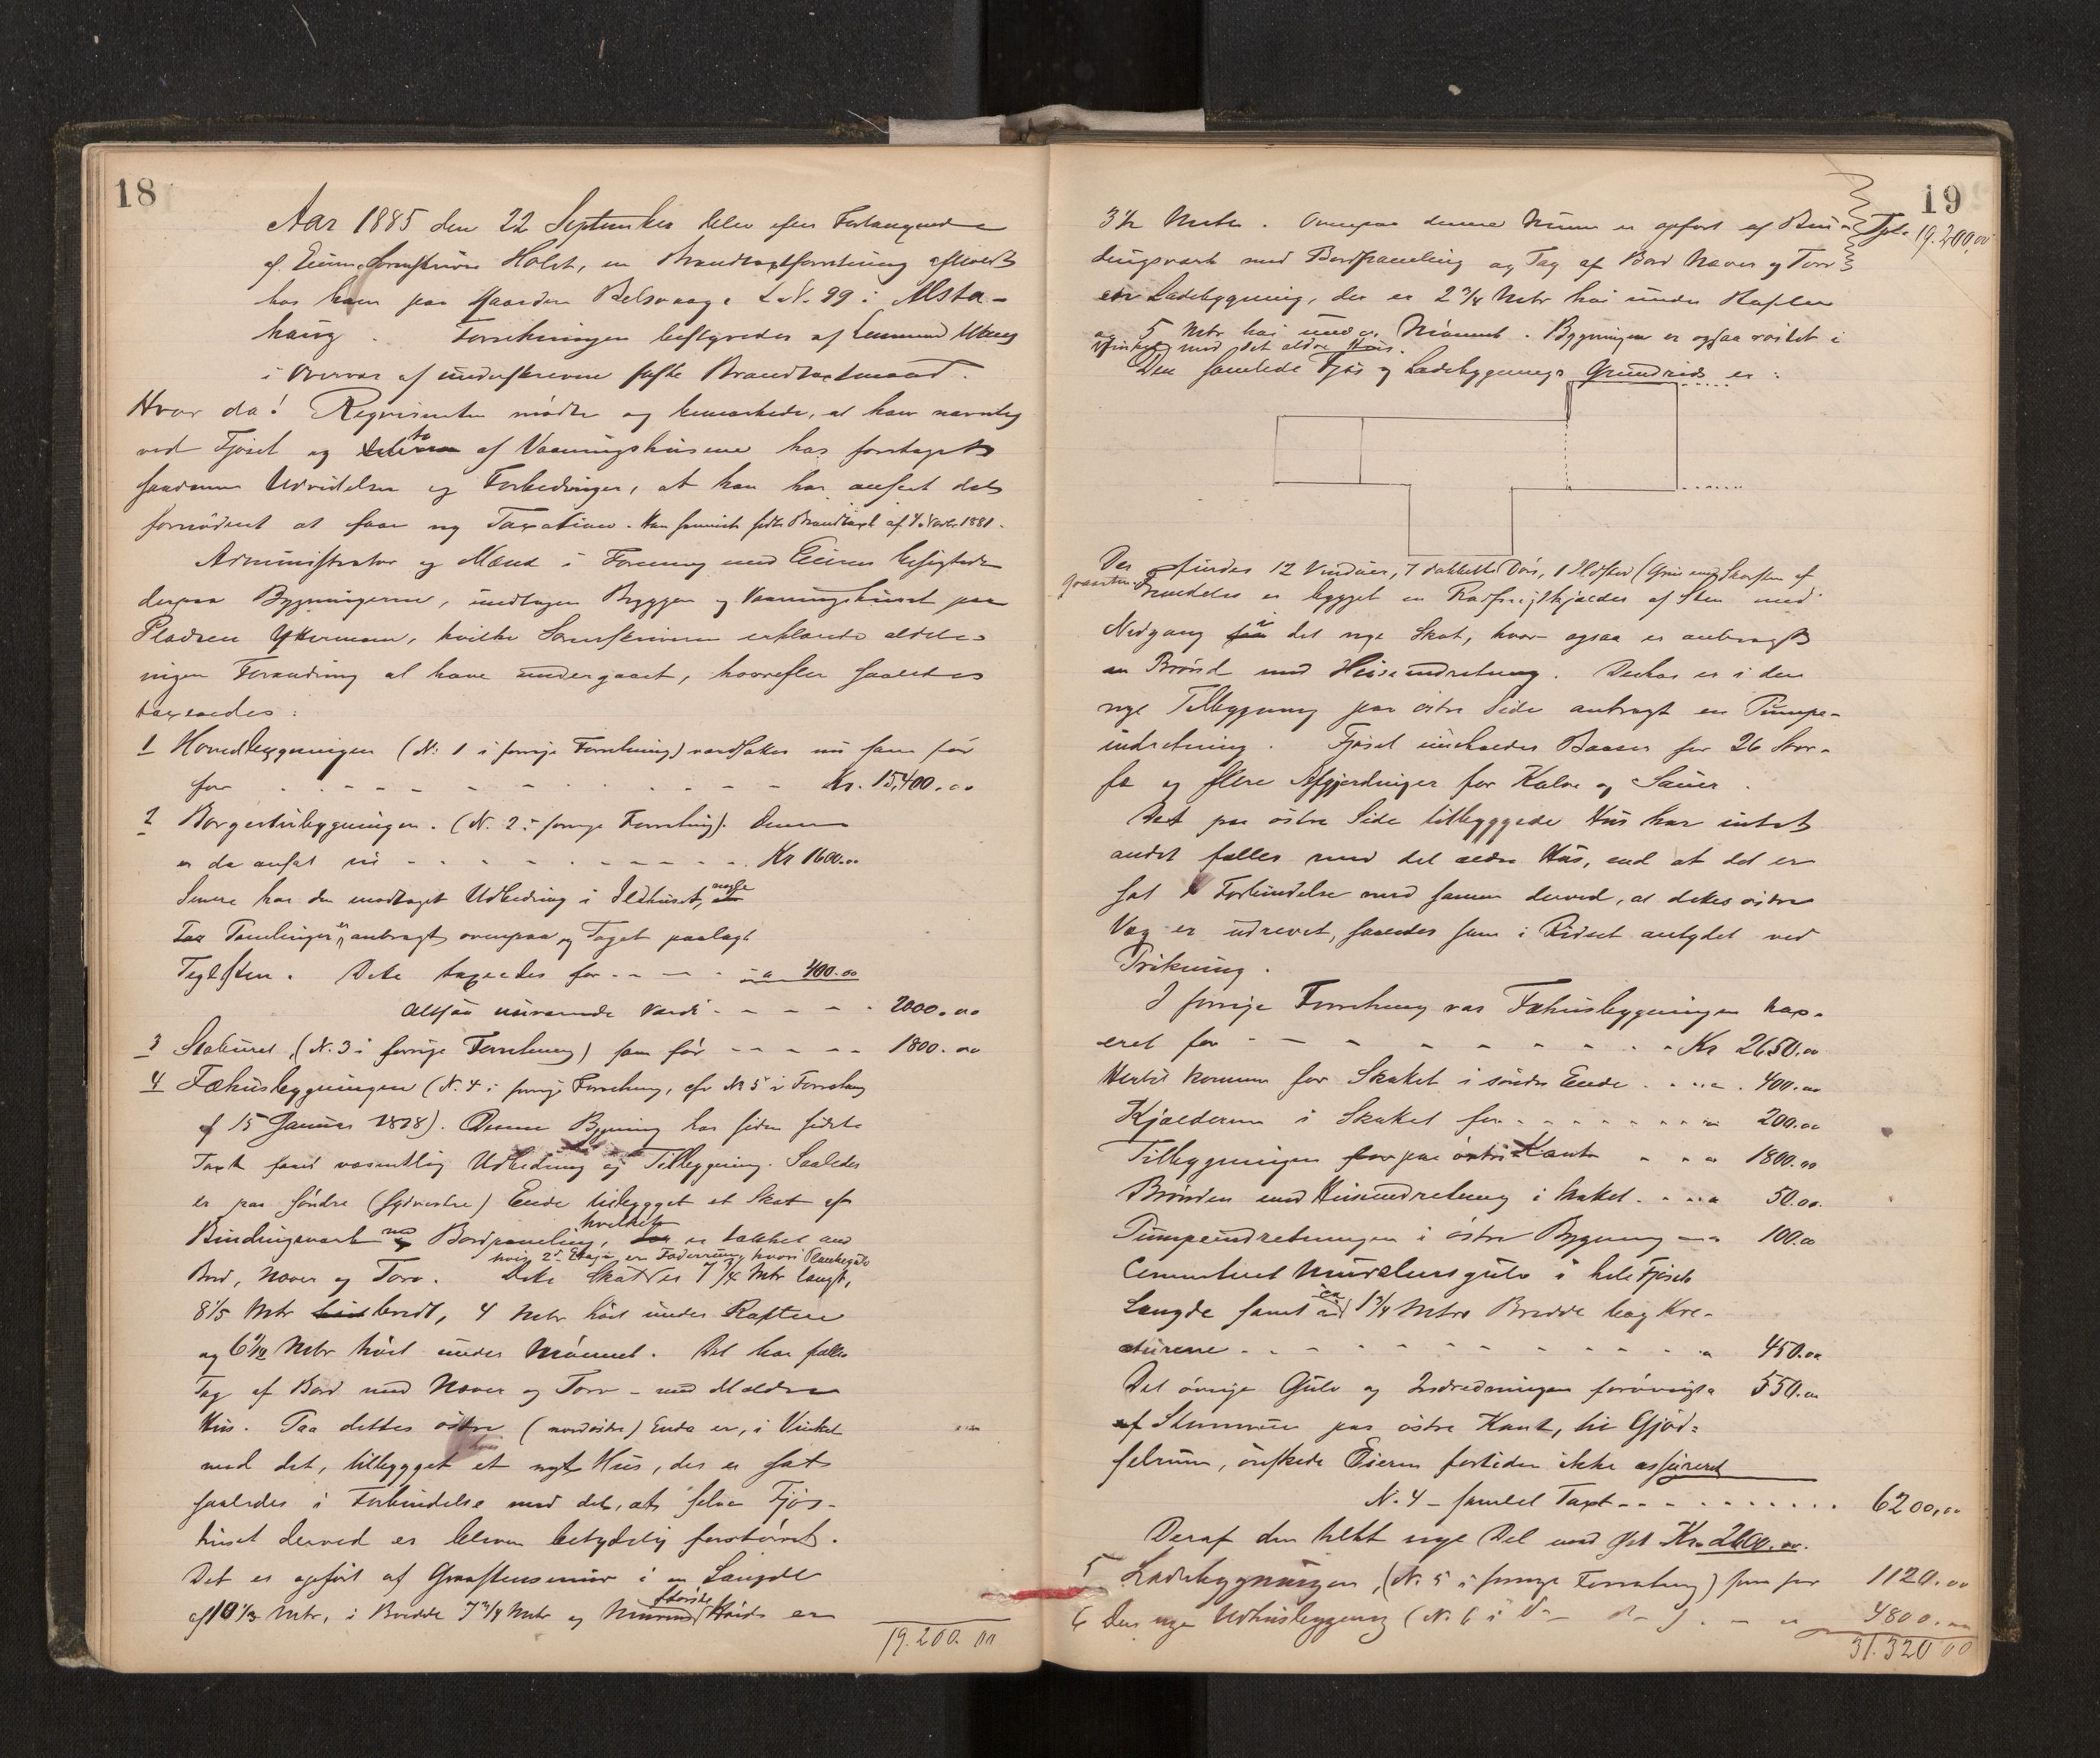 18
Aar 1885 den 22 September blev efter Forlangende
af Eieren Sorenskriver Holst, en Brandtaxtforretning afholdt
hos ham paa Gaarden Belsvaag L. N. 99 i Alsta-
haug. Forretningen bestyredes af Lensmand
i Overvær af underskrevne faste Brandtaxtmænd.
Hvor da! Reqvirenten mødte og bemærkede, at han navnlig
ved Fjøset og to af Vaaningshusene har foretaget
saadanne Udvidelser og Forbedringer, at han har anseet det
fornødent at faa ny Taxation. Han fremviste sidste Brandtaxt af 1881.
Administrator og Mænd i Forening med Eieren besigtede
derpaa Bygningerne, undtagen Bryggen og Vaaningshuset paa
Pladsen, hvilke Sorenskriveren erklærede aldeles
ingen Forandring at have undergaaet, hvorefter saaledes
taxeredes:
1 Hovedbygningen (N. 1 i forrige Forretning) værdsattes nu som før
for - - - - Kr. 15,400.00
2 Borgestubygningen. (N. 2 i forrige Forretning). Denne
er da ansat til - - - - Kr 1600.00
Senere har den modtaget Udbedring i Ildhuset, nogle
er anbragt ovenpaa og Taget paalagt
Teglsten. Dette taxeredes for - - - - 400.00
Altsaa nuværende Værdi - - - - 2000.00
3 Staburet, (N. 3 i forrige Forretning) som før - - - - 1800.00
4 Fæhusbygningen (N. 4 i forrige Forretning, cfr N 5 i Forretning
af 15 Januar 1878). Denne Bygning har siden sidste
Taxt faaet væsentlig Udbedring og Tilbygning. Saaledes
er paa søndre (sydvestre) Ende tilbygget et Skot af
Bindingsværk med Bordpaneling, hvilket er tækket med
hvis 2den Etage er Foderrum, hvori Plankegulv
Bord, Næver og Torv. Dette Skot er 7 1/4 Mtr langt,
8 1/5 Mtr bredt, 4 Mtr høit under Raftene
og 6 1/2 Mtr høit under Mønnet. Det har fælles
Tag af Bord med Næver og Torv - med det ældre
Hus. Paa dettes østre (nordøstre) Ende er, i Vinkel
med det, tilbygget et nyt Hus, der er sat
saaledes i Forbindelse med det, at selve Fjøs-
huset derved er bleven betydelig forstørret.
Det er opført af Graastensmur i en Længde
af 10 1/3 Mtr, i Bredde 7 3/4 Mtr og største Høide er
19.200.00
19
3 1/2 Meter. Ovenpaa denne Muur er opført af Bin-
Tpt. 19.200,00
dingsværk med Bordpaneling og Tag af Bord Næver og Torv
en Ladebygning, der er 2 3/4 Mtr høi under Raften
og 5 Mtr høi under Mønnet. Bygningen er ogsaa reist i
Vinkel med det ældre Hus.
Den samlede Fjøs og Ladebygnings Grundrids er:
Der findes 12 Vinduer, 7 dobbelte Døre, 1 Ildsted (Grue med Skorsten af
graasten.
Fremdeles er bygget en Kjælder af Sten med
Nedgang i det nye Skot, hvor ogsaa er anbragt
en Brønd med Heiseindretning. Derhos er i den
nye Tilbygning paa østre Side anbragt en Pumpe-
indretning. Fjøset indeholder Baaser for 26 Stor-
fæ og flere Afgjerdninger for Kalve og Sauer.
Det paa østre Side tilbyggede Hus har intet
andet fælles med det ældre Hus, end at det er
sat i Forbindelse med samme derved, at dettes østre
Væg er udrevet, saaledes som i Ridset antydet ved
Prikning.
I forrige Forretning var Fæhusbygningen tax-
eret for - - - - Kr 2650.00
Hertil kommer for Skottet i søndre Ende - - - - 400.00
Kjælderen i Skottet for - - - - 200.00
Tilbygningen paa østre Kant - - - 1800.00
Brønden med Heiseindretning i Skottet - - - 50.00
Pumpeindretningen i østre Bygning - - 100.00
Cementeret Murstensgulv i hele Fjøsets
Længde samt ca 1 3/4 Mtrs Bredde bag Kre-
aturene - - - - 450.00
Det øvrige Gulv og Indredningen forøvrigt 550.00
af Stenmuren paa østre Kant, til Gjød-
selrum, ønskede Eieren fortiden ikke assureret
N. 4 - samlet Taxt - - - - 6200,00
Deraf den helt nye Del med Kr. 2600.00.
5 Ladebygningen, (N. 5 i forrige Forretning) som før 1120.00
6 Den nye Udhusbygning (N. 6 i - - - 4800.00
31.320 00